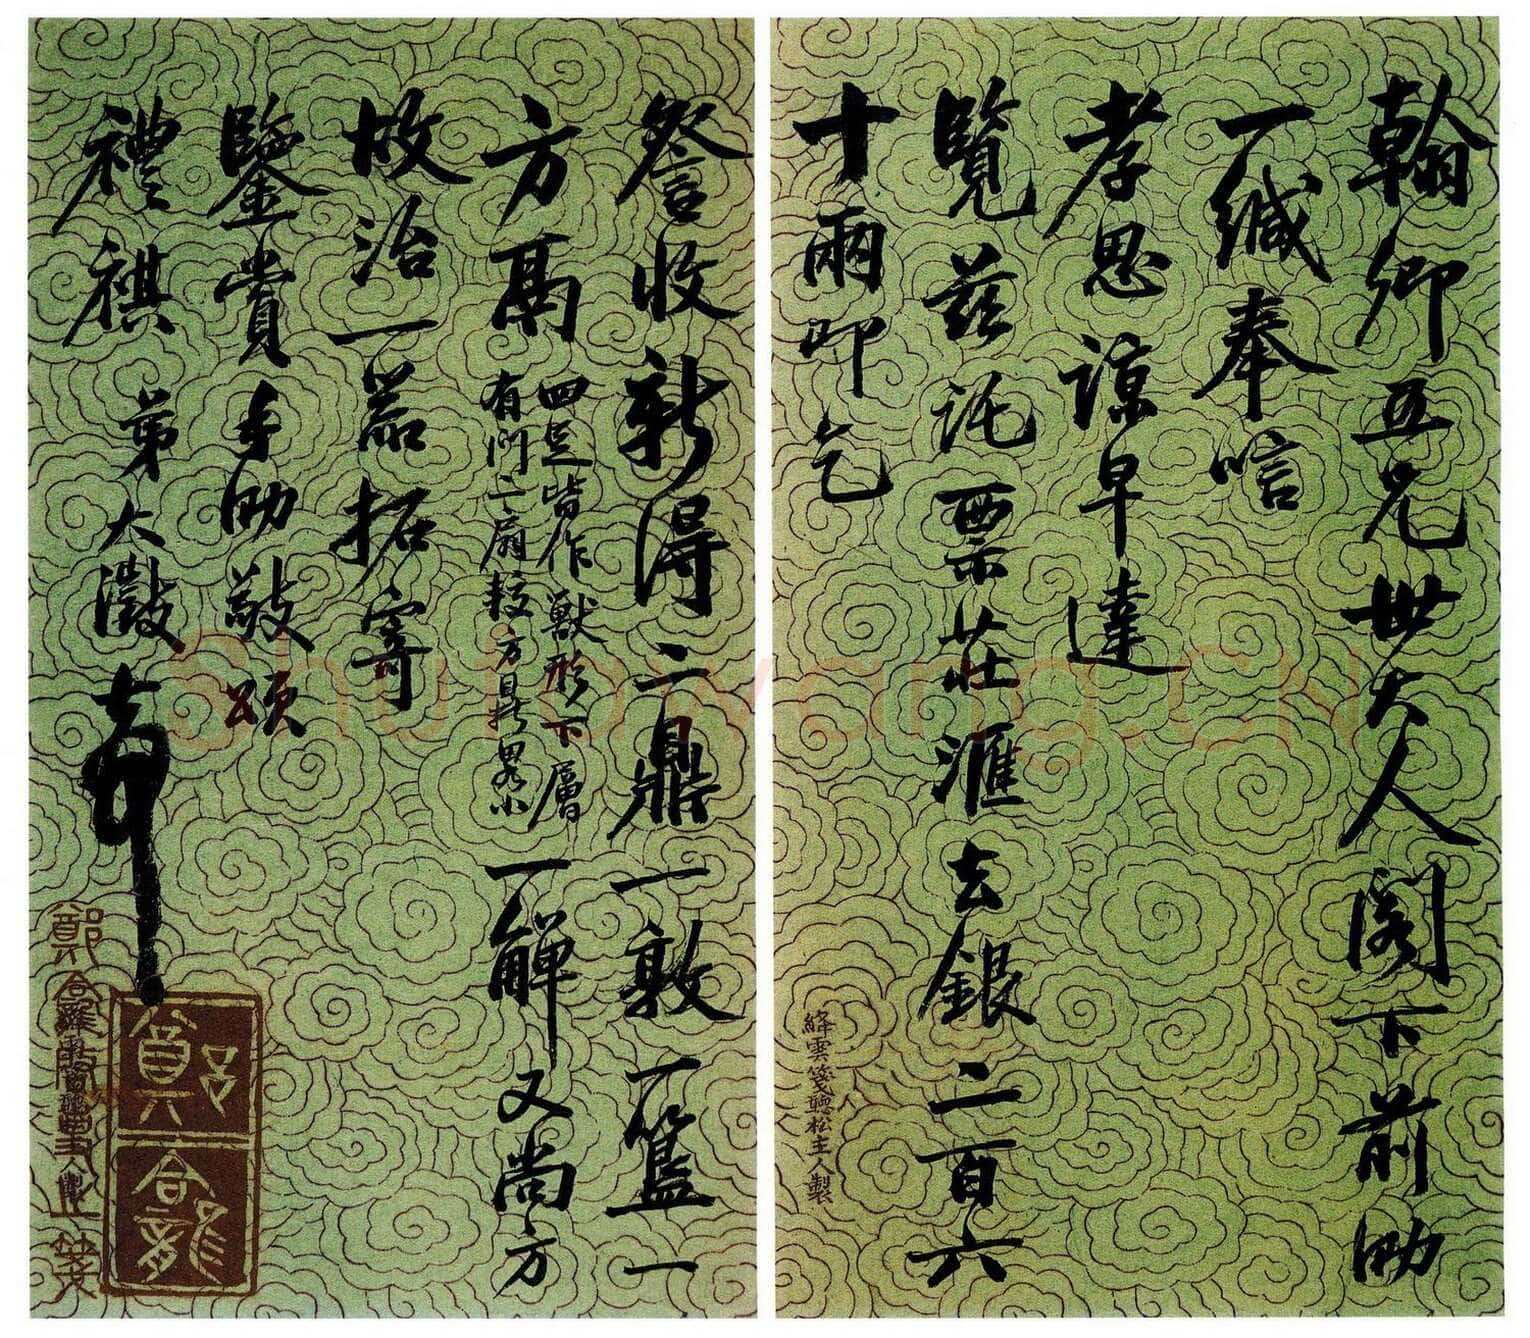 翰卿五兄世大人阁下前泐
一缄奉唁
孝思谅早達
覽兹託票莊滙去銀二百六
十兩叩乞
詧收新得二鼎一敦一簠一
方鬲
四足皆作獸形下層
有門二扇較方鼎畧小
一觶又尚方
故治一器拓寄
鑒賞手泐敬頌
禮祺 弟大澂
絳雲箋聽松主人製
Shufawang.CN